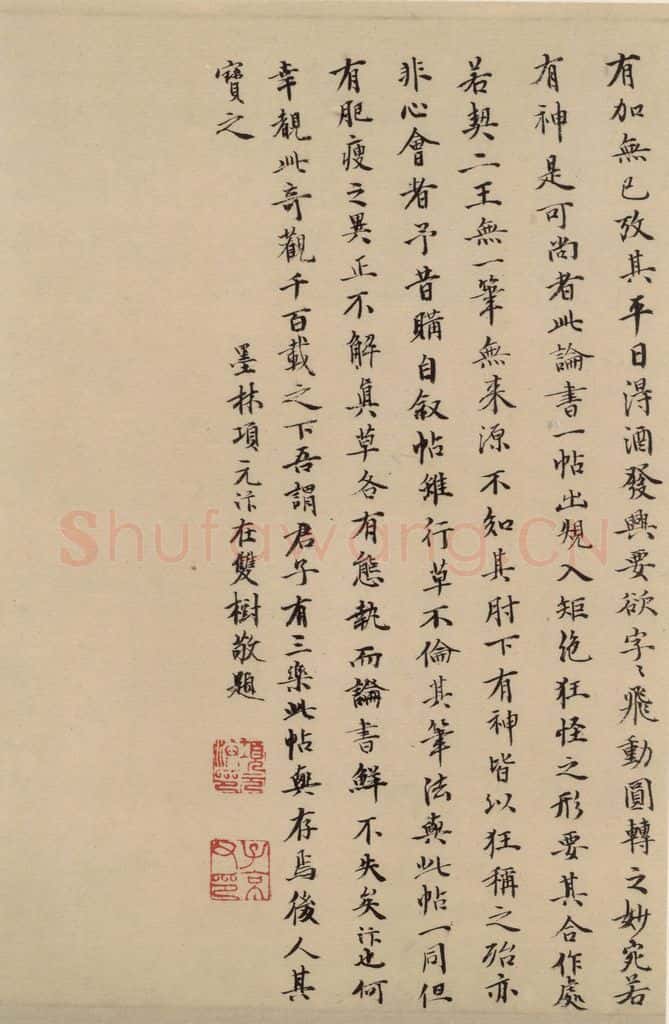 有加無已攷其平日得酒發興要欲字〻飛動圓轉之妙宛若
有神是可尚者此論書一帖出規入矩絶狂怪之形要其合作處
若契二王無一筆無来源不知其肘下有神皆以狂稱之殆亦
非心會者予昔購自叙帖雖行草不倫其筆法與此帖一同但
有肥瘦之異正不解眞草各有態執而論書鮮不失矣汴也何
幸覩此奇觀千百載之下吾謂君子有三樂此帖與存焉後人其
寶之
墨林項元汴在雙樹敬題
項元汴印
子京父印
Shufawang.CN